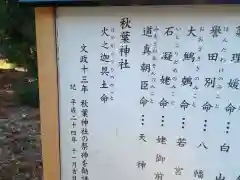 理媛命 ― 白山
誉田別命 ― 八幡
大鷦鷯命 ― 若宮
石凝姥命 ― 姥御前
道真朝臣命 ― 天神
秋葉神社
火之迦具土命
文政十三年 秋葉神社の祭神を勧
記 平成二十四年十一月吉